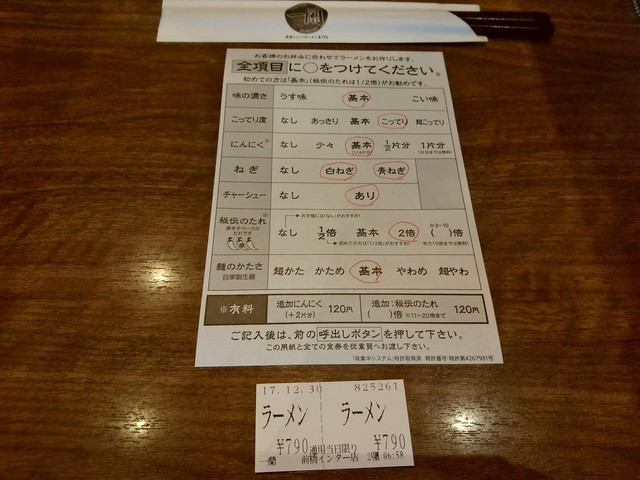 一蘭
お客様のお好みに合わせてラーメンをお作りします。
全項目に○をつけてください。
初めての方は「基本」(秘伝のたれは1/2倍)がお勧めです。
味の濃さ うす味 基本 こい味
こってり度 なし あっさり 基本 こってり 超こってり
にんにく※ なし 少々 基本 1/2片分 1片分
ねぎ なし 白ねぎ 青ねぎ
チャーシュー なし あり
お子様には「なし」がおすすめ!
秘伝のたれ※ なし 1/2倍 基本 2倍 ( )倍
初めての方は「1/2倍」がおすすめ!
麺のかたさ 超かた かため 基本 やわめ 超やわ
自家製生麺
※有料 追加にんにく 120円 追加:秘伝のたれ 120円
(+2片分) ( )倍 ※11~20倍まで
ご記入後は、前の呼出しボタンを押して下さい。
この用紙と全ての食券を従業員へお渡し下さい。
「味集中システム」特許取得済 特許番号:特許第4267981号
17.12.30 825261
ラーメン ラーメン
¥790 通用当日限り ¥790
一蘭 前橋インター店 06:58